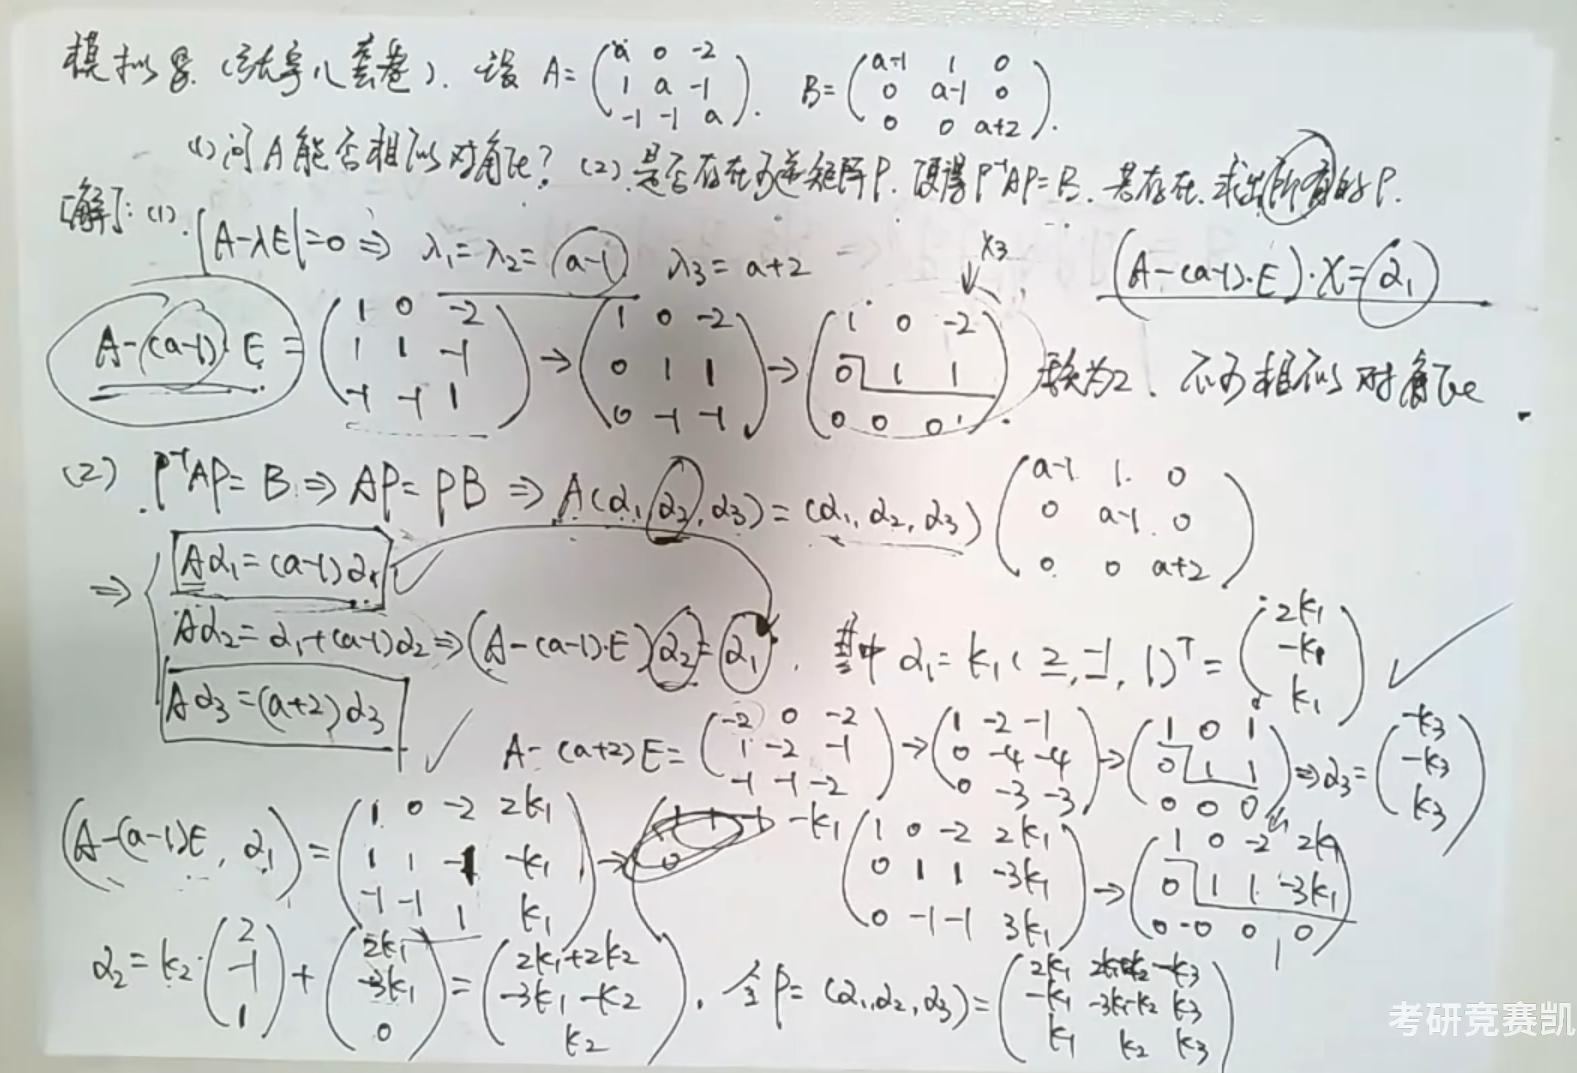 模拟8.(张宇八套卷). 设 A=(a 0 -2; 1 a -1; -1 -1 a). B=(a-1 1 0; 0 a-1 0; 0 0 a+2).
(1)问A能否相似对角化? (2).是否存在可逆矩阵P. 使得P⁻¹AP=B. 若存在.求出所有的P.
[解]: (1). |A-λE|=0 ⇒ λ₁=λ₂=(a-1) λ₃=a+2 x₃ (A-(a-1)·E)·X=α₁
A-(a-1)·E=(1 0 -2; 1 1 -1; -1 -1 1)→(1 0 -2; 0 1 1; 0 -1 -1)→(1 0 -2; 0 1 1; 0 0 0). 秩为2. 不可相似对角化.
(2) P⁻¹AP=B ⇒ AP=PB ⇒ A(α₁,α₂,α₃)=(α₁,α₂,α₃)(a-1 1 0; 0 a-1 0; 0 0 a+2)
⇒ { Aα₁=(a-1)α₁
Aα₂=α₁+(a-1)α₂⇒(A-(a-1)·E)α₂=α₁. 其中 α₁=k₁(2,-1,1)ᵀ=(2k₁; -k₁; k₁)
Aα₃=(a+2)α₃
A-(a+2)E=(-2 0 -2; 1 -2 -1; -1 -1 -2)→(1 -2 -1; 0 -4 -4; 0 -3 -3)→(1 0 1; 0 1 1; 0 0 0)⇒α₃=(-k₃; -k₃; k₃)
(A-(a-1)E, α₁)=(1 0 -2 2k₁; 1 1 -1 -k₁; -1 -1 1 k₁)→ -k₁ (1 0 -2 2k₁; 0 1 1 -3k₁; 0 -1 -1 3k₁)→(1 0 -2 2k₁; 0 1 1 -3k₁; 0 0 0 0)
α₂=k₂·(2; -1; 1)+(2k₁; -3k₁; 0)=(2k₁+2k₂; -3k₁-k₂; k₂). 令P=(α₁,α₂,α₃)=(2k₁ 2k₁+2k₂ -k₃; -k₁ -3k₁-k₂ k₃; k₁ k₂ k₃)
考研竞赛凯